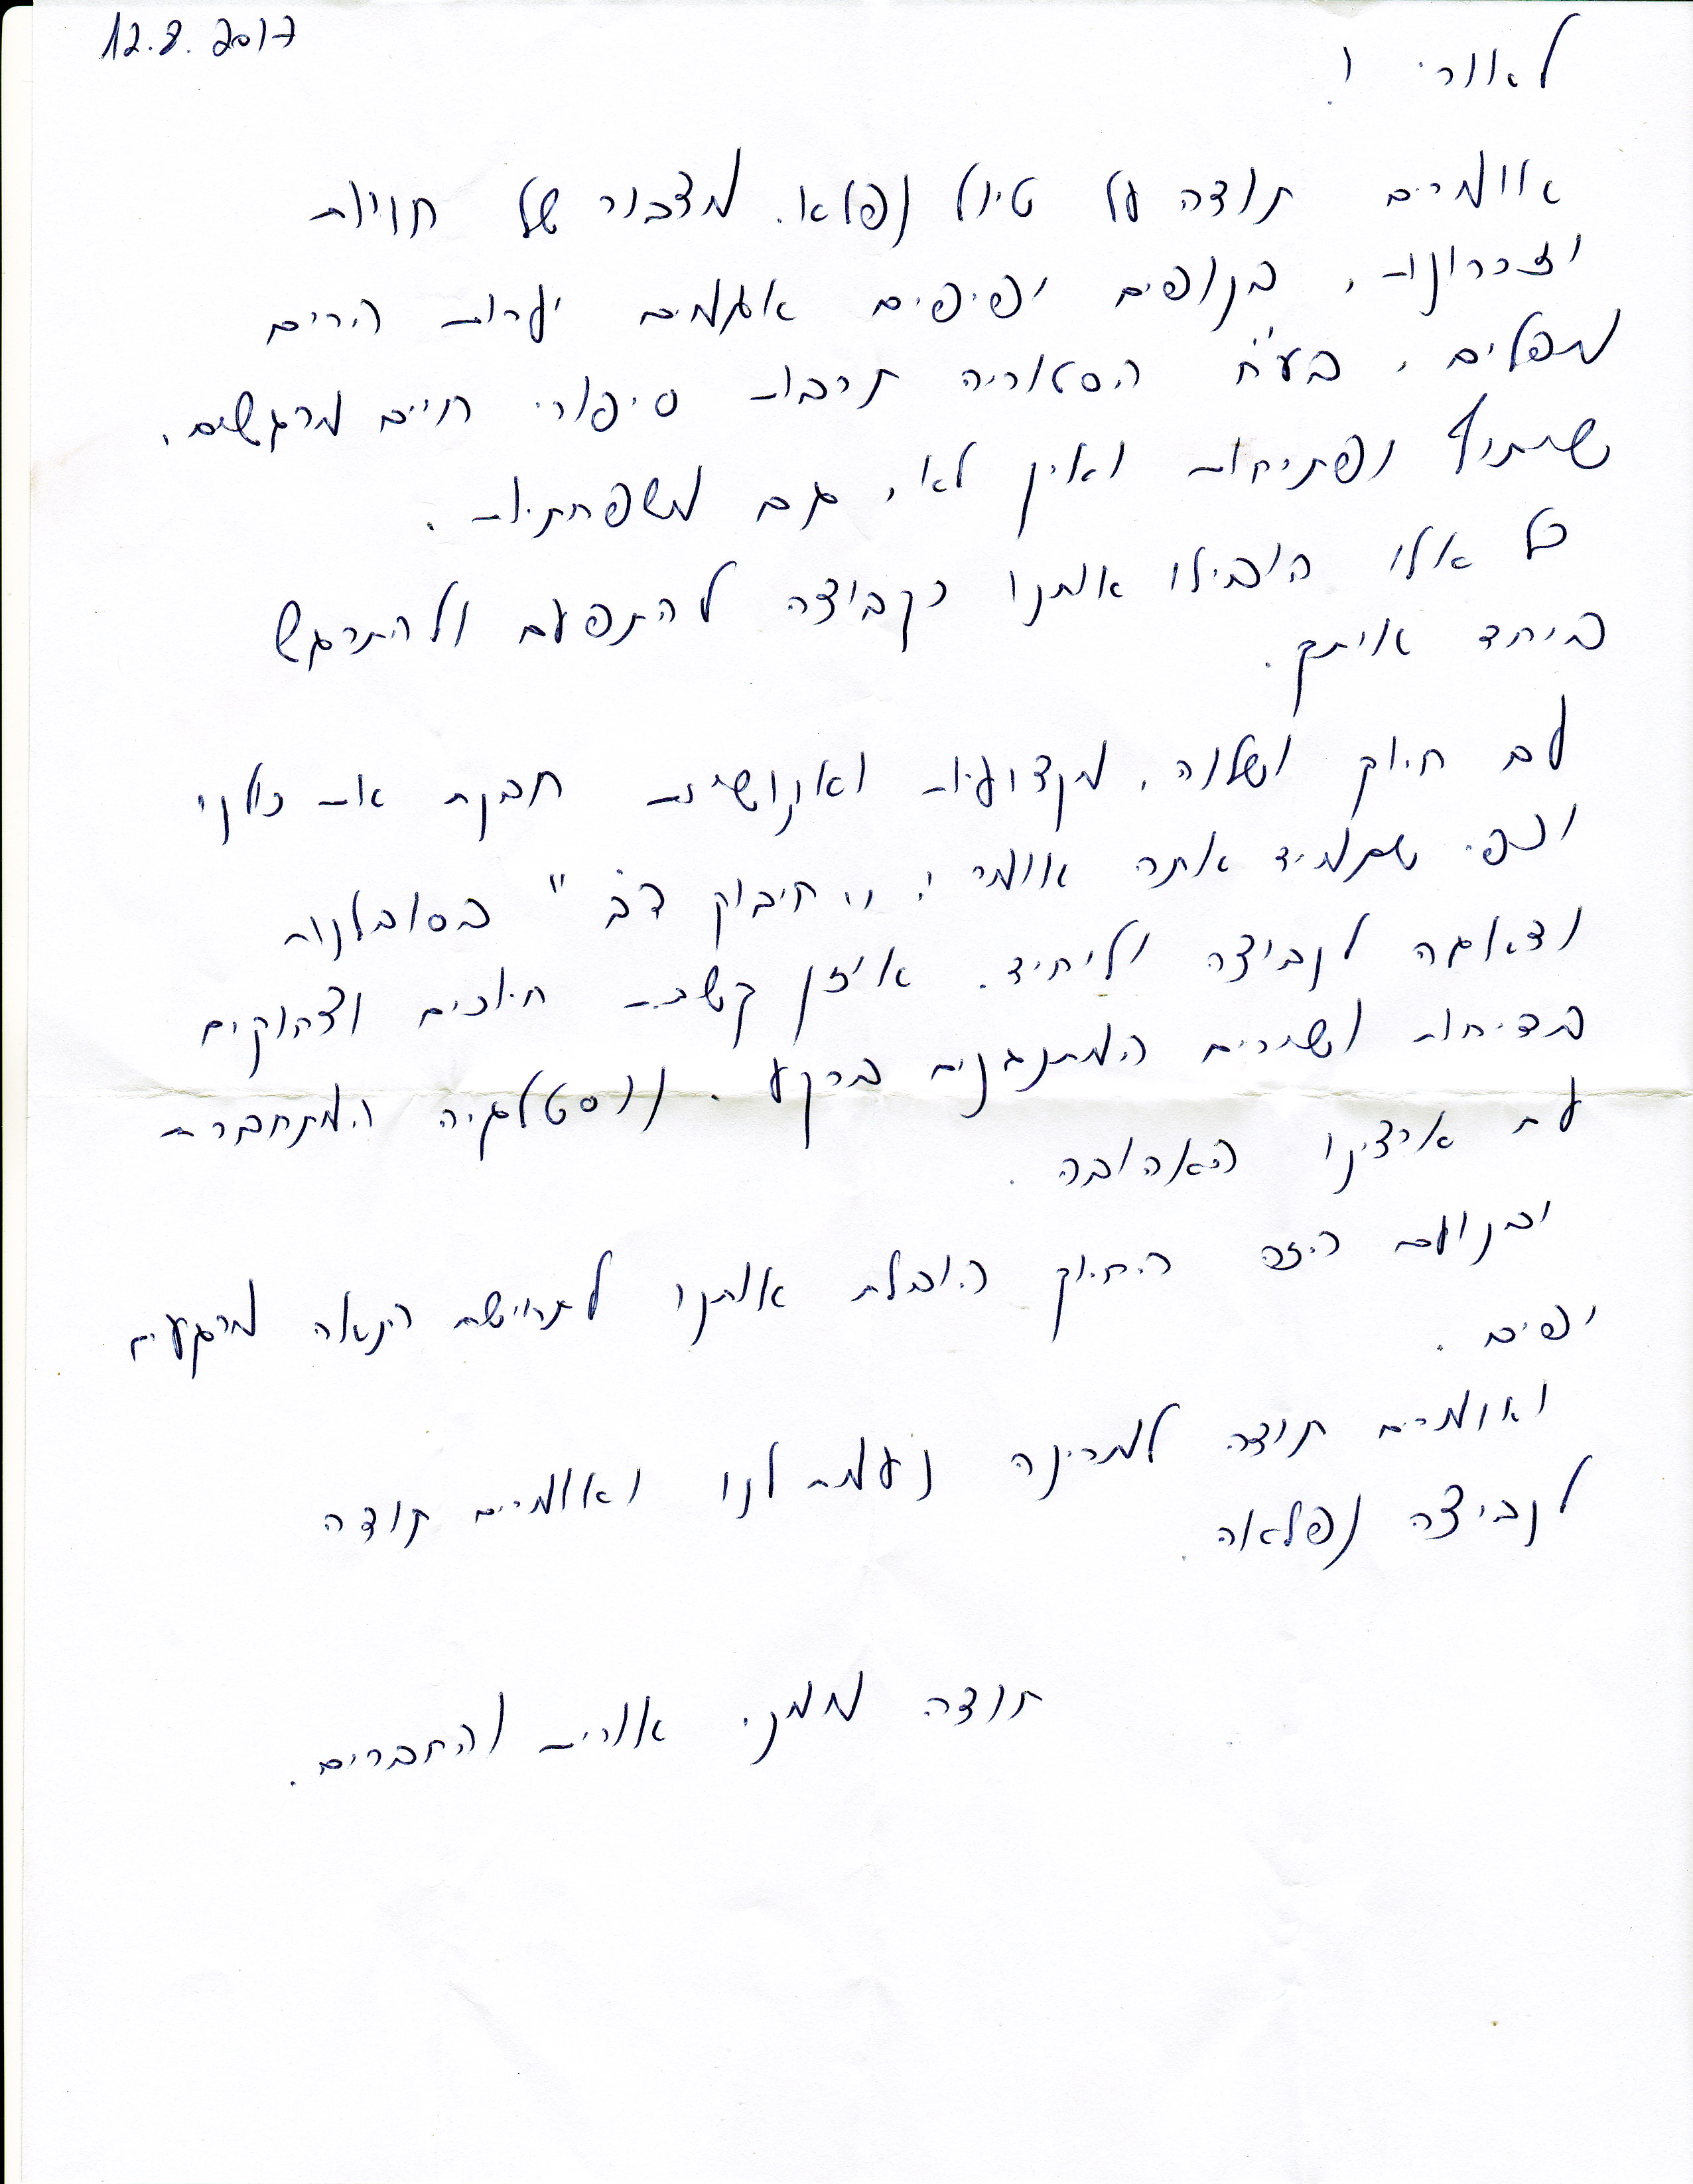 12.8.2017
לאורי !
אומרים תודה על טיול נפלא. מצבור של חויות
וזכרונות, בנופים יפיפים אגמים יערות הרים
מפלים, בע"ח הסטוריה תרבות סיפורי חיים מרגשים.
שיתוף ופתיחות ואין לאי, גם משפחתיות.
כל אלו הובילו אותנו כקבוצה להתפעם ולהתרגש
ביחד איתך.
לב חיוך ושלוה, מקצועיות ואנושיות חבקת את כולנו
וכפי שתמיד אתה אומר: "חיבוק דב" בסובלנות
ודאגה לקבוצה וליחיד. אוזן קשבת חיוכים וצחוקים
בדיחות ושירים המתנגנים ברקע. נוסטלגיה המתחברת
עם ארצינו האהובה.
ובנועם הזה החיוך הובלת אותנו לתחושת הנאה מרגעים
יפים.
ואומרים תודה למרינה נעמת לנו ואומרים תודה
לקבוצה נפלאה.
תודה ממני אורית והחברים.